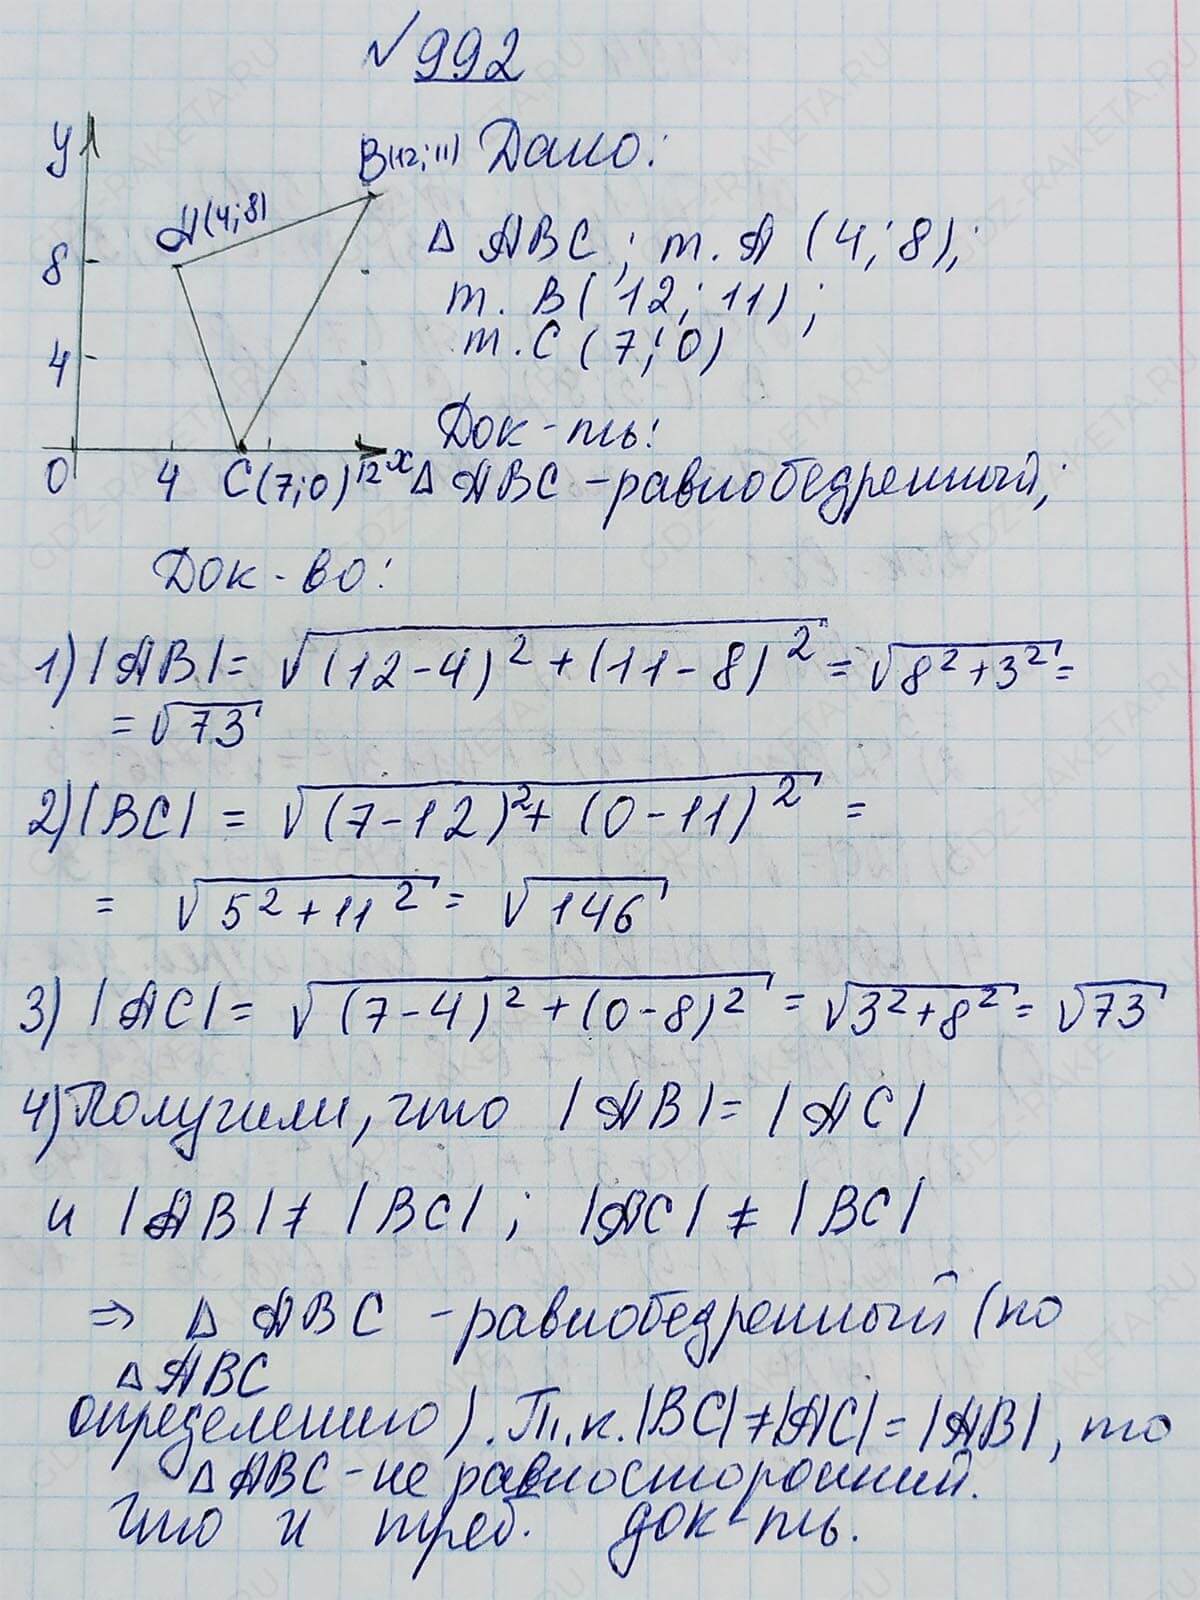 №992
y
B(12;11) Дано:
A(4;8)
8
Δ ABC; т. A (4; 8);
т. B( 12; 11) ;
4
т. C (7; 0)
Док-ть:
0 4 C(7;0) 12 x Δ ABC - равнобедренный;
Док-во:
1) |AB| = √((12-4)² + (11-8)²) = √(8²+3²) =
= √73
2) |BC| = √((7-12)² + (0-11)²) =
= √(5²+11²) = √146
3) |AC| = √((7-4)² + (0-8)²) = √(3²+8²) = √73
4) Получили, что |AB| = |AC|
и |AB| ≠ |BC| ; |AC| ≠ |BC|
⇒ Δ ABC - равнобедренный (по
Δ ABC
определению). Т.к. |BC| ≠ |AC| = |AB|, то
Δ ABC - не равносторонний.
Что и треб. док-ть.
GDZ-RAKETA.RU